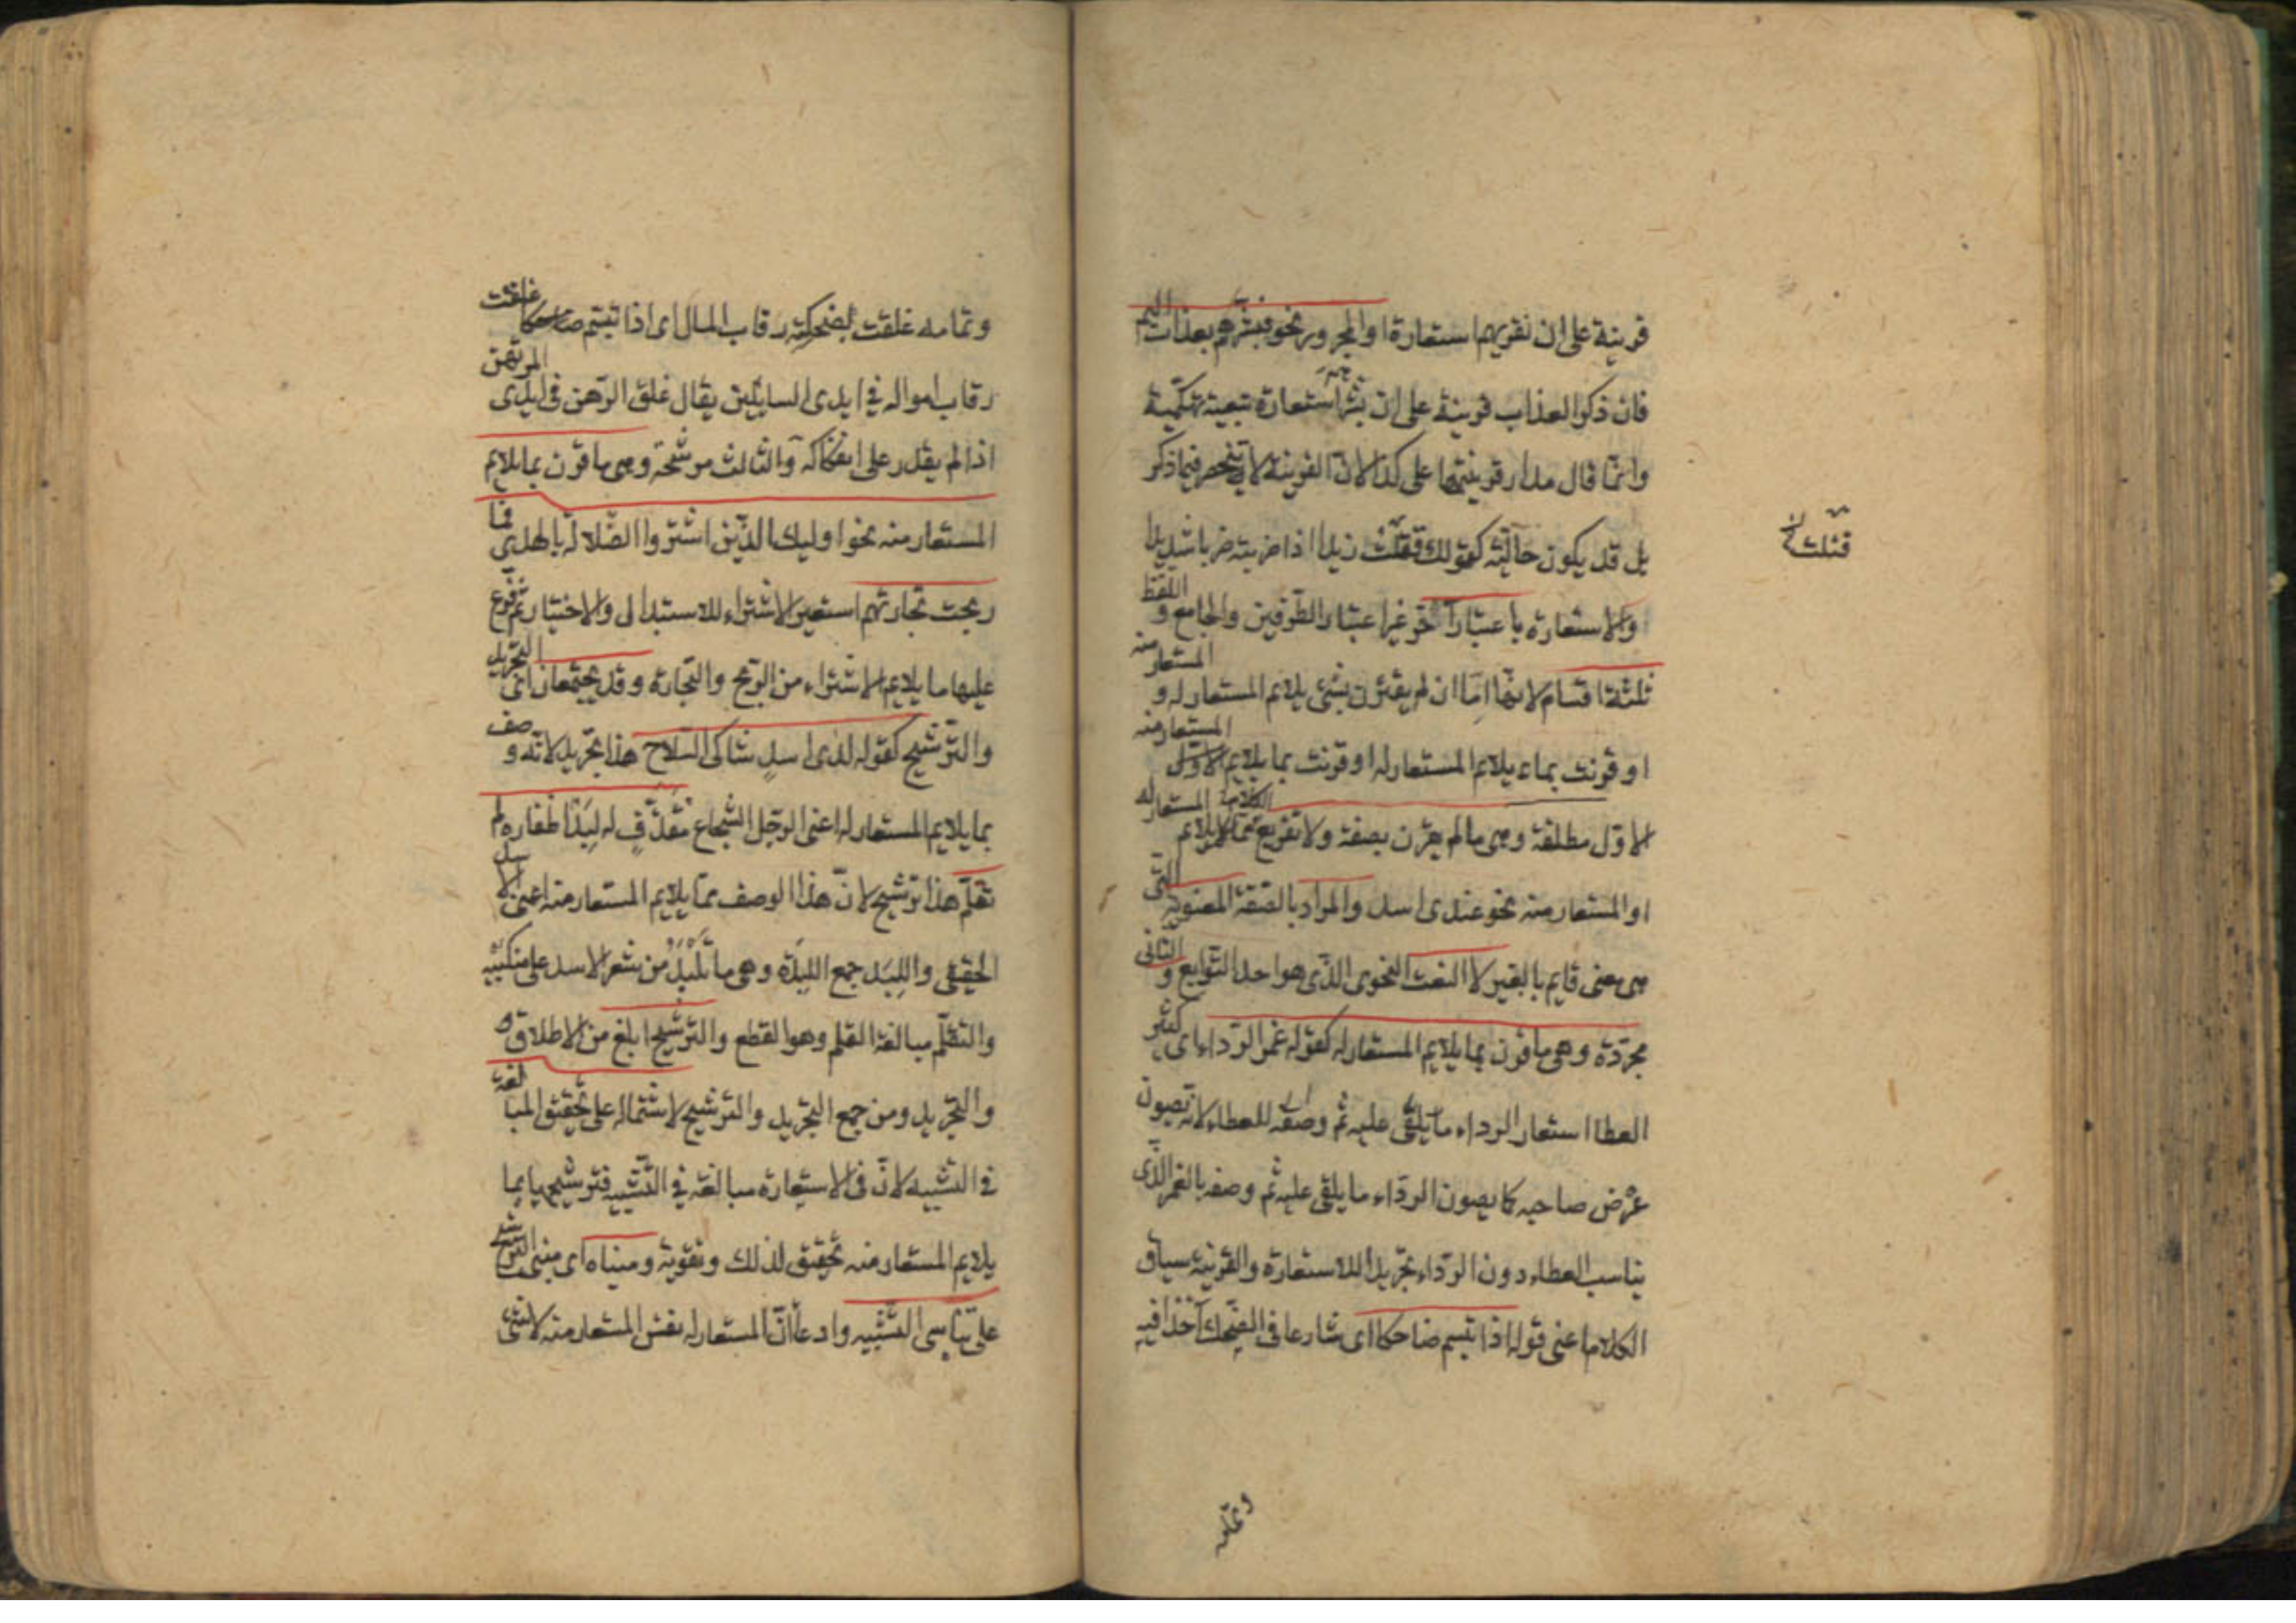 قرينة على ان نقريهم استعارة او المجرور نحو فبشرهم بعذاب اليم
فان ذكر العذاب قرينة على ان بشر استعارة تبعية تهكمية
وانما قال مدار قرينتها على كذا لان القرينة لا تنحصر فيما ذكر
بل قد يكون حالية كقولك قتلت زيدا اذا ضربته ضربا شديدا
قتلت
والاستعارة باعتبار آخر غير اعتبار الطرفين والجامع و اللفظ
ثلثة اقسام لانها اما ان لم يقترن بشئ يلايم المستعار له و المستعار منه
او قرنت بما يلايم المستعار له او قرنت بما يلايم المستعار منه الاول
الاول مطلقة وهى ما لم يقرن بصفة ولا تفريع كلام مما يلايم المستعار له
او المستعار منه نحو عندى اسد والمراد بالصفة المعنوية التى
هى معنى قايم بالغير لا النعت النحوى الذى هو احد التوابع و الثانى
مجردة وهى ما قرن بما يلايم المستعار له كقوله غمر الرداء اى كثير
العطا استعار الرداء للعطاء لانه يصون
عرض صاحبه كما يصون الرداء ما يلقى عليه ثم وصفه بالغمر الذى
يناسب العطاء دون الرداء تجريدا للاستعارة والقرينة سياق
الكلام اعنى قوله اذا تبسم ضاحكا اى شارعا فى الضحك آخذا فيه
وتمامه
وتمامه غلقت لضحكته رقاب المال اى اذا تبسم ضاحكا غلقت
رقاب امواله في ايدى السايلين يقال غلق الرهن فى ايدى المرتهن
اذا لم يقدر على انفكاكه والثالث مرشحة وهى ما قرن بما يلايم
المستعار منه نحو اوليك الذين اشتروا الضلالة بالهدى فما
ربحت تجارتهم استعير الاشتراء للاستبدال والاختيار ثم فرع
عليها ما يلايم الاشتراء من الربح والتجارة وقد يجتمعان اى التجريد
والترشيح كقوله لدى اسد شاكى السلاح هذا تجريد لانه وصف
بما يلايم المستعار له اعنى الرجل الشجاع مقذف له لبد اظفاره لم
تقلم هذا ترشيح لان هذا الوصف مما يلايم المستعار منه اعنى الاسد
الحقيقى واللبد جمع اللبدة وهى ما تلبد من شعر الاسد على منكبيه
والتقلم مبالغة القلم وهو القطع والترشيح ابلغ من الاطلاق
والتجريد ومن جمع التجريد والترشيح لاشتماله على تحقيق المبالغة
في التشبيه لان فى الاستعارة مبالغة في التشبيه فترشيحها بما
يلايم المستعار منه تحقيق لذلك وتقوية ومبناه اى مبنى الترشيح
على تناسى التشبيه وادعا ان المستعار له نفس المستعار منه لا شئ